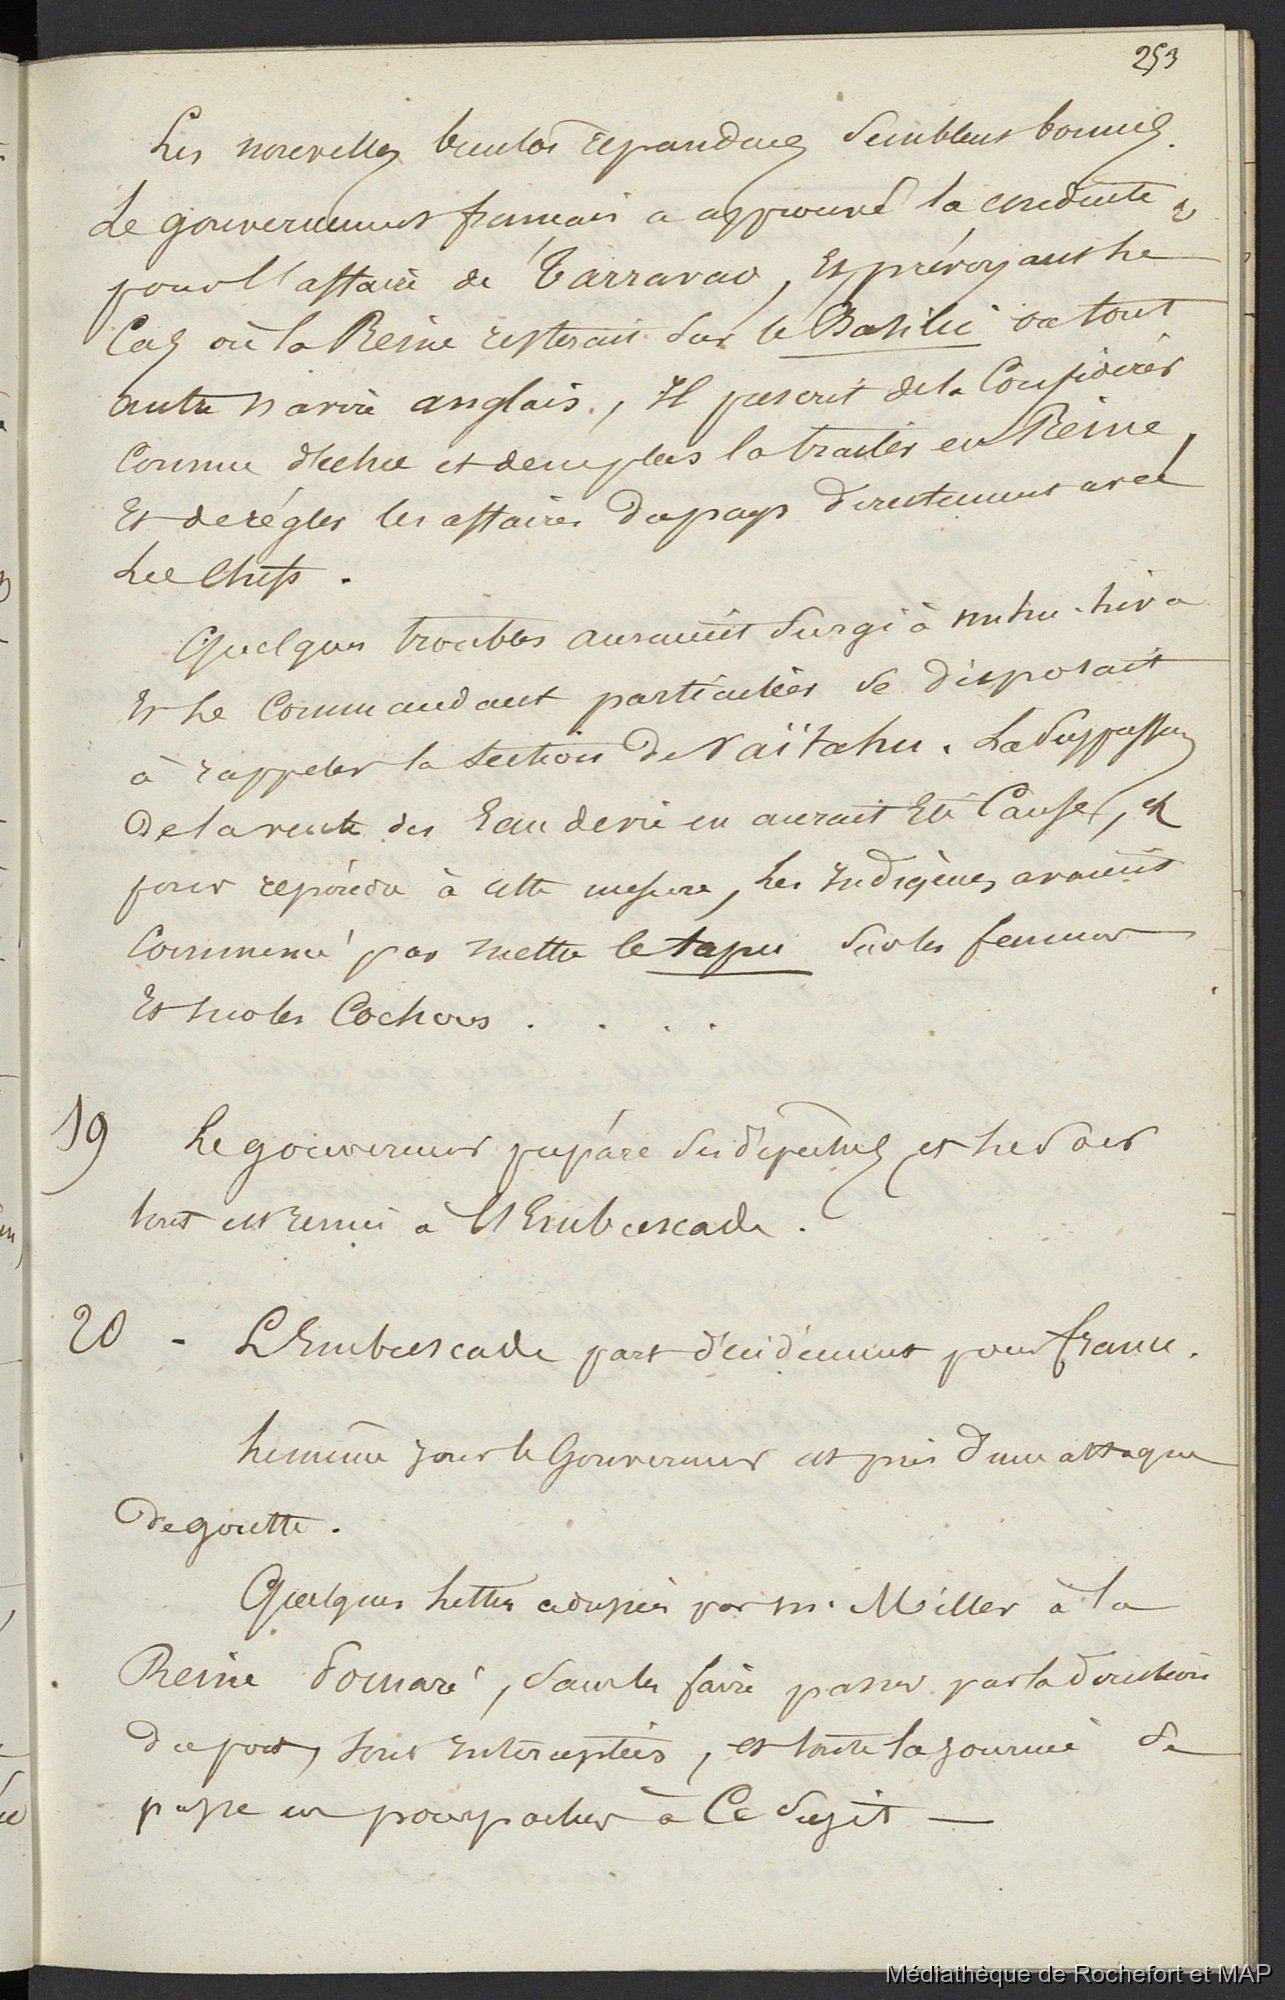 253
Les nouvelles bientôt répandues semblent bonnes.
Le gouvernement français a approuvé la conduite
pour l'affaire de Tarravao, Et prévoyant le
Cas où la Reine resterait sur le Basilic ou tout
autre navire anglais, Il prescrit de la Considérer
comme déchue et de ne plus la traiter en Reine,
Et de régler les affaires du pays directement avec
Les Chefs.
Quelques troubles auraient surgi à nuhu-hiva
Et Le Commandant particulier se disposait
à rappeler la section de Vaïtahu. La suppression
De la vente des Eau de vie en aurait Eté Cause, et
pour répondre à cette mesure, Les Indigènes avaient
Commencé par mettre le tapu sur les femmes
Et sur les Cochons . . . .
19 Le gouverneur prépare ses dépêches et le soir
tout est remis à l'Embuscade.
20 - L'Embuscade part décidément pour france.
Le même jour le Gouverneur est pris d'une attaque
De goutte.
Quelques Lettres adressées par m. Miller à la
Reine Pomaré, sans les faire passer par la direction
du port, sont Interceptées, et toute la journée se
passe en pourparlers à Ce sujet —
Médiathèque de Rochefort et MAP